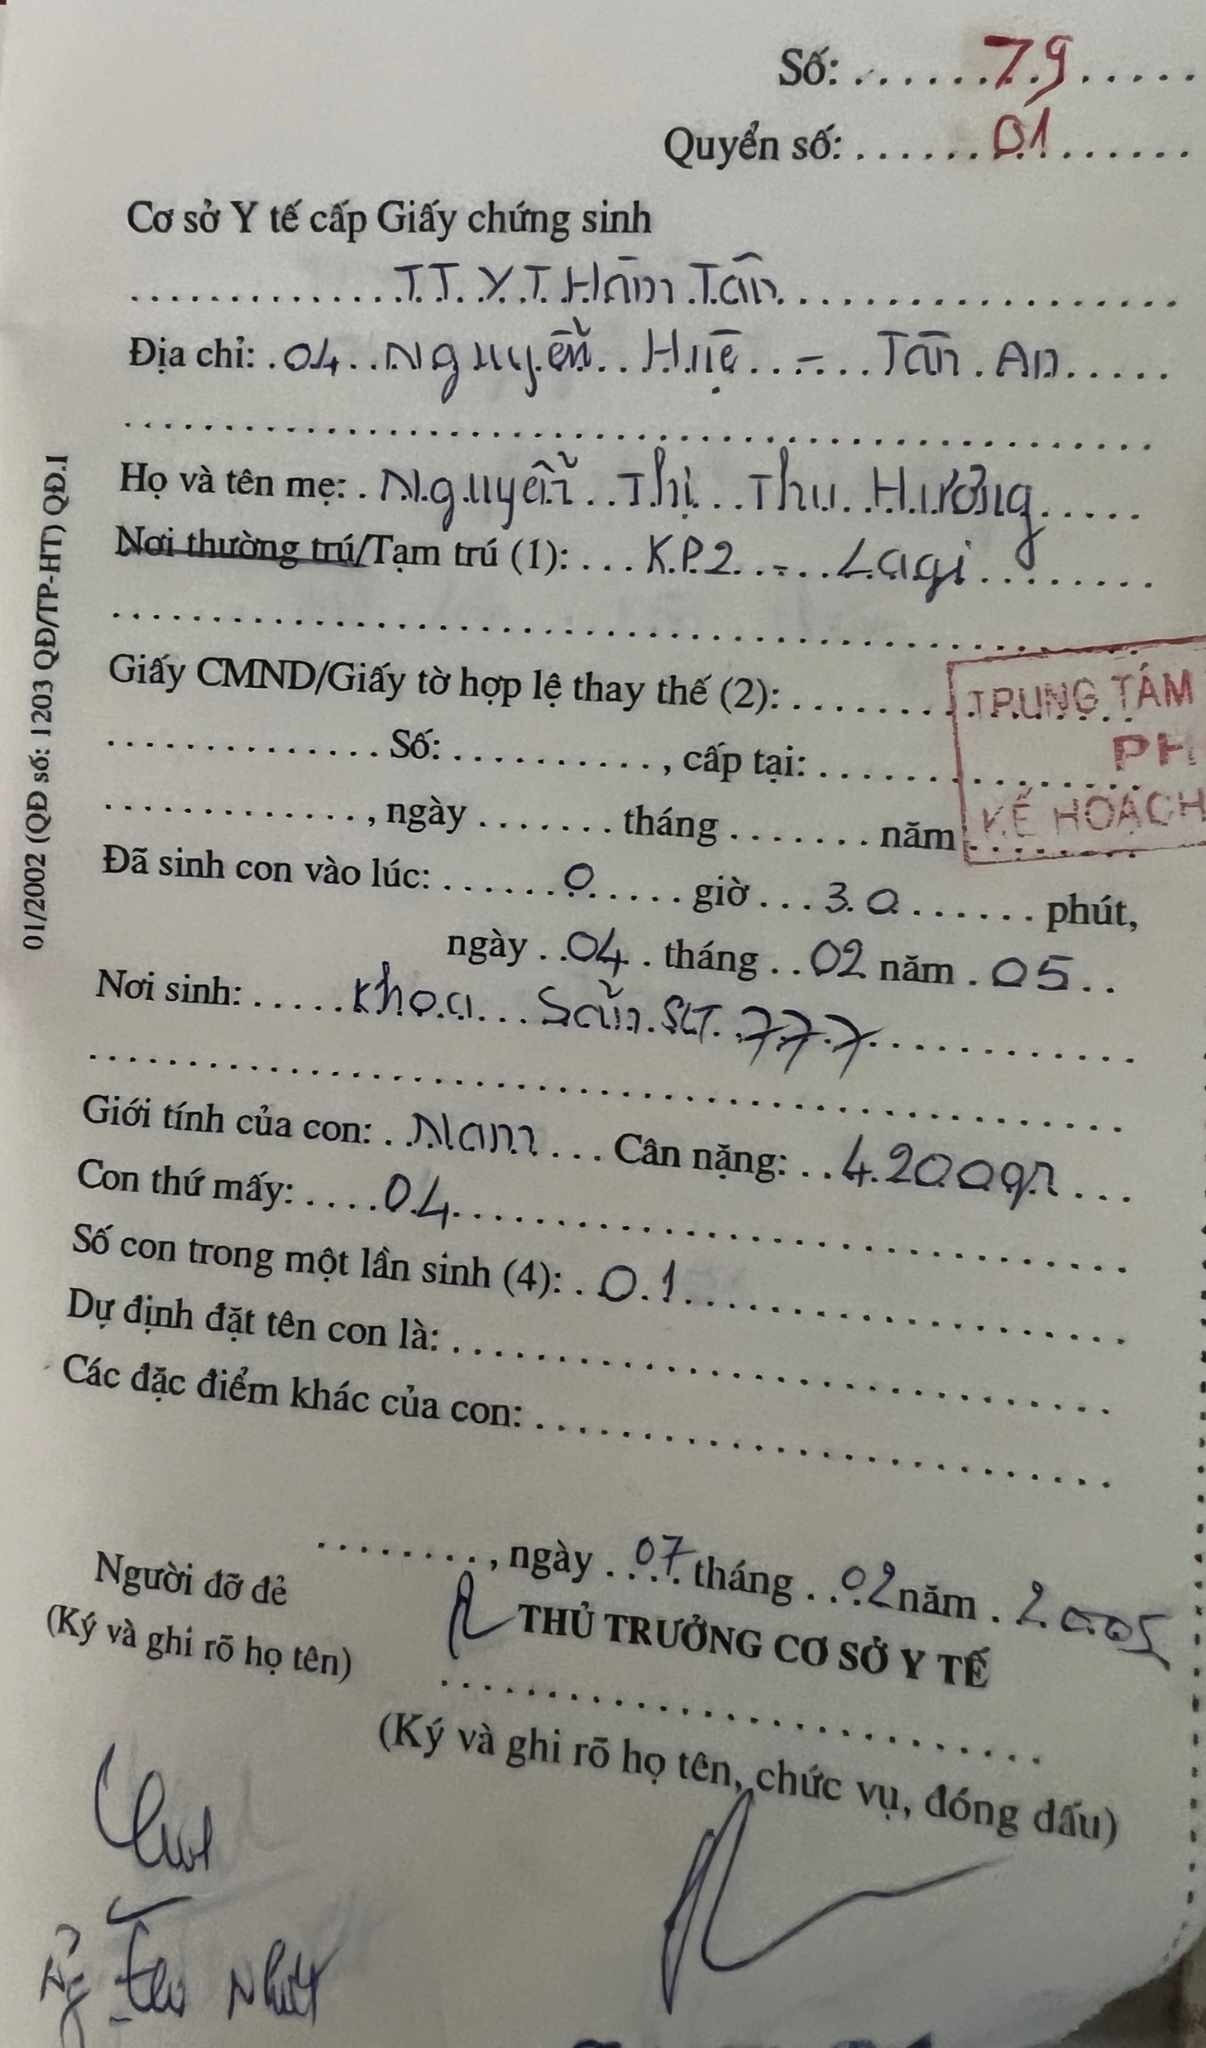 Số: 79
Quyển số: 01
Cơ sở Y tế cấp Giấy chứng sinh
TT.Y.T Hàm Tân
Địa chỉ: 04 Nguyễn Huệ - Tân An
Họ và tên mẹ: Nguyễn Thị Thu Hương
Nơi thường trú/Tạm trú (1): KP2 - Lagi
Giấy CMND/Giấy tờ hợp lệ thay thế (2):
TRUNG TÂM
Số: , cấp tại:
PH
, ngày tháng năm
KẾ HOẠCH
Đã sinh con vào lúc: 0 giờ 30 phút,
ngày 04 tháng 02 năm 05
Nơi sinh: Khoa Sản SLT 777
Giới tính của con: Nam Cân nặng: 4.200gr
Con thứ mấy: 04
Số con trong một lần sinh (4): 01
Dự định đặt tên con là:
Các đặc điểm khác của con:
, ngày 07 tháng 02 năm 2005
Người đỡ đẻ
THỦ TRƯỞNG CƠ SỞ Y TẾ
(Ký và ghi rõ họ tên)
(Ký và ghi rõ họ tên, chức vụ, đóng dấu)
01/2002 (QĐ số: 1203 QĐ/TP-HT) QĐ.I